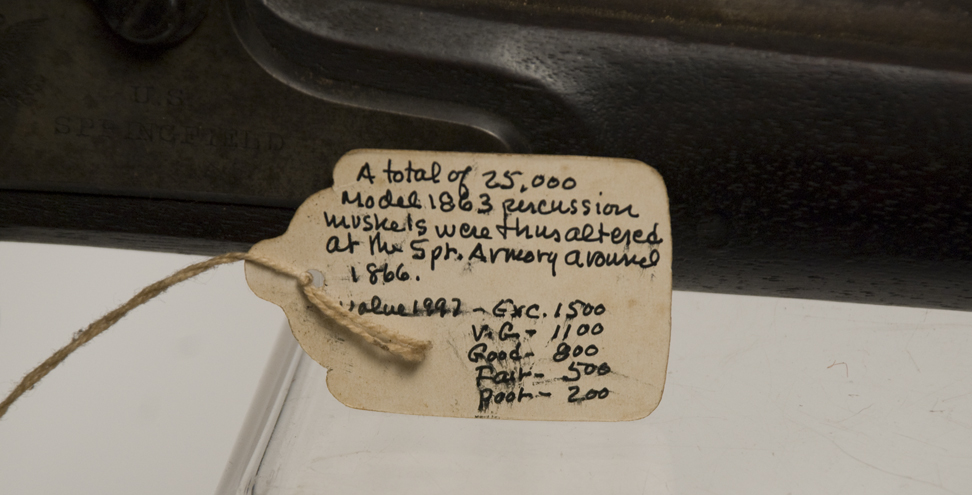 U.S.
SPRINGFIELD
A total of 25,000
Model 1863 percussion
muskets were thus altered
at the Spr. Armory around
1866.
Value 1997 - Exc. 1500
V.G. - 1100
Good - 800
Fair - 500
Poor - 200